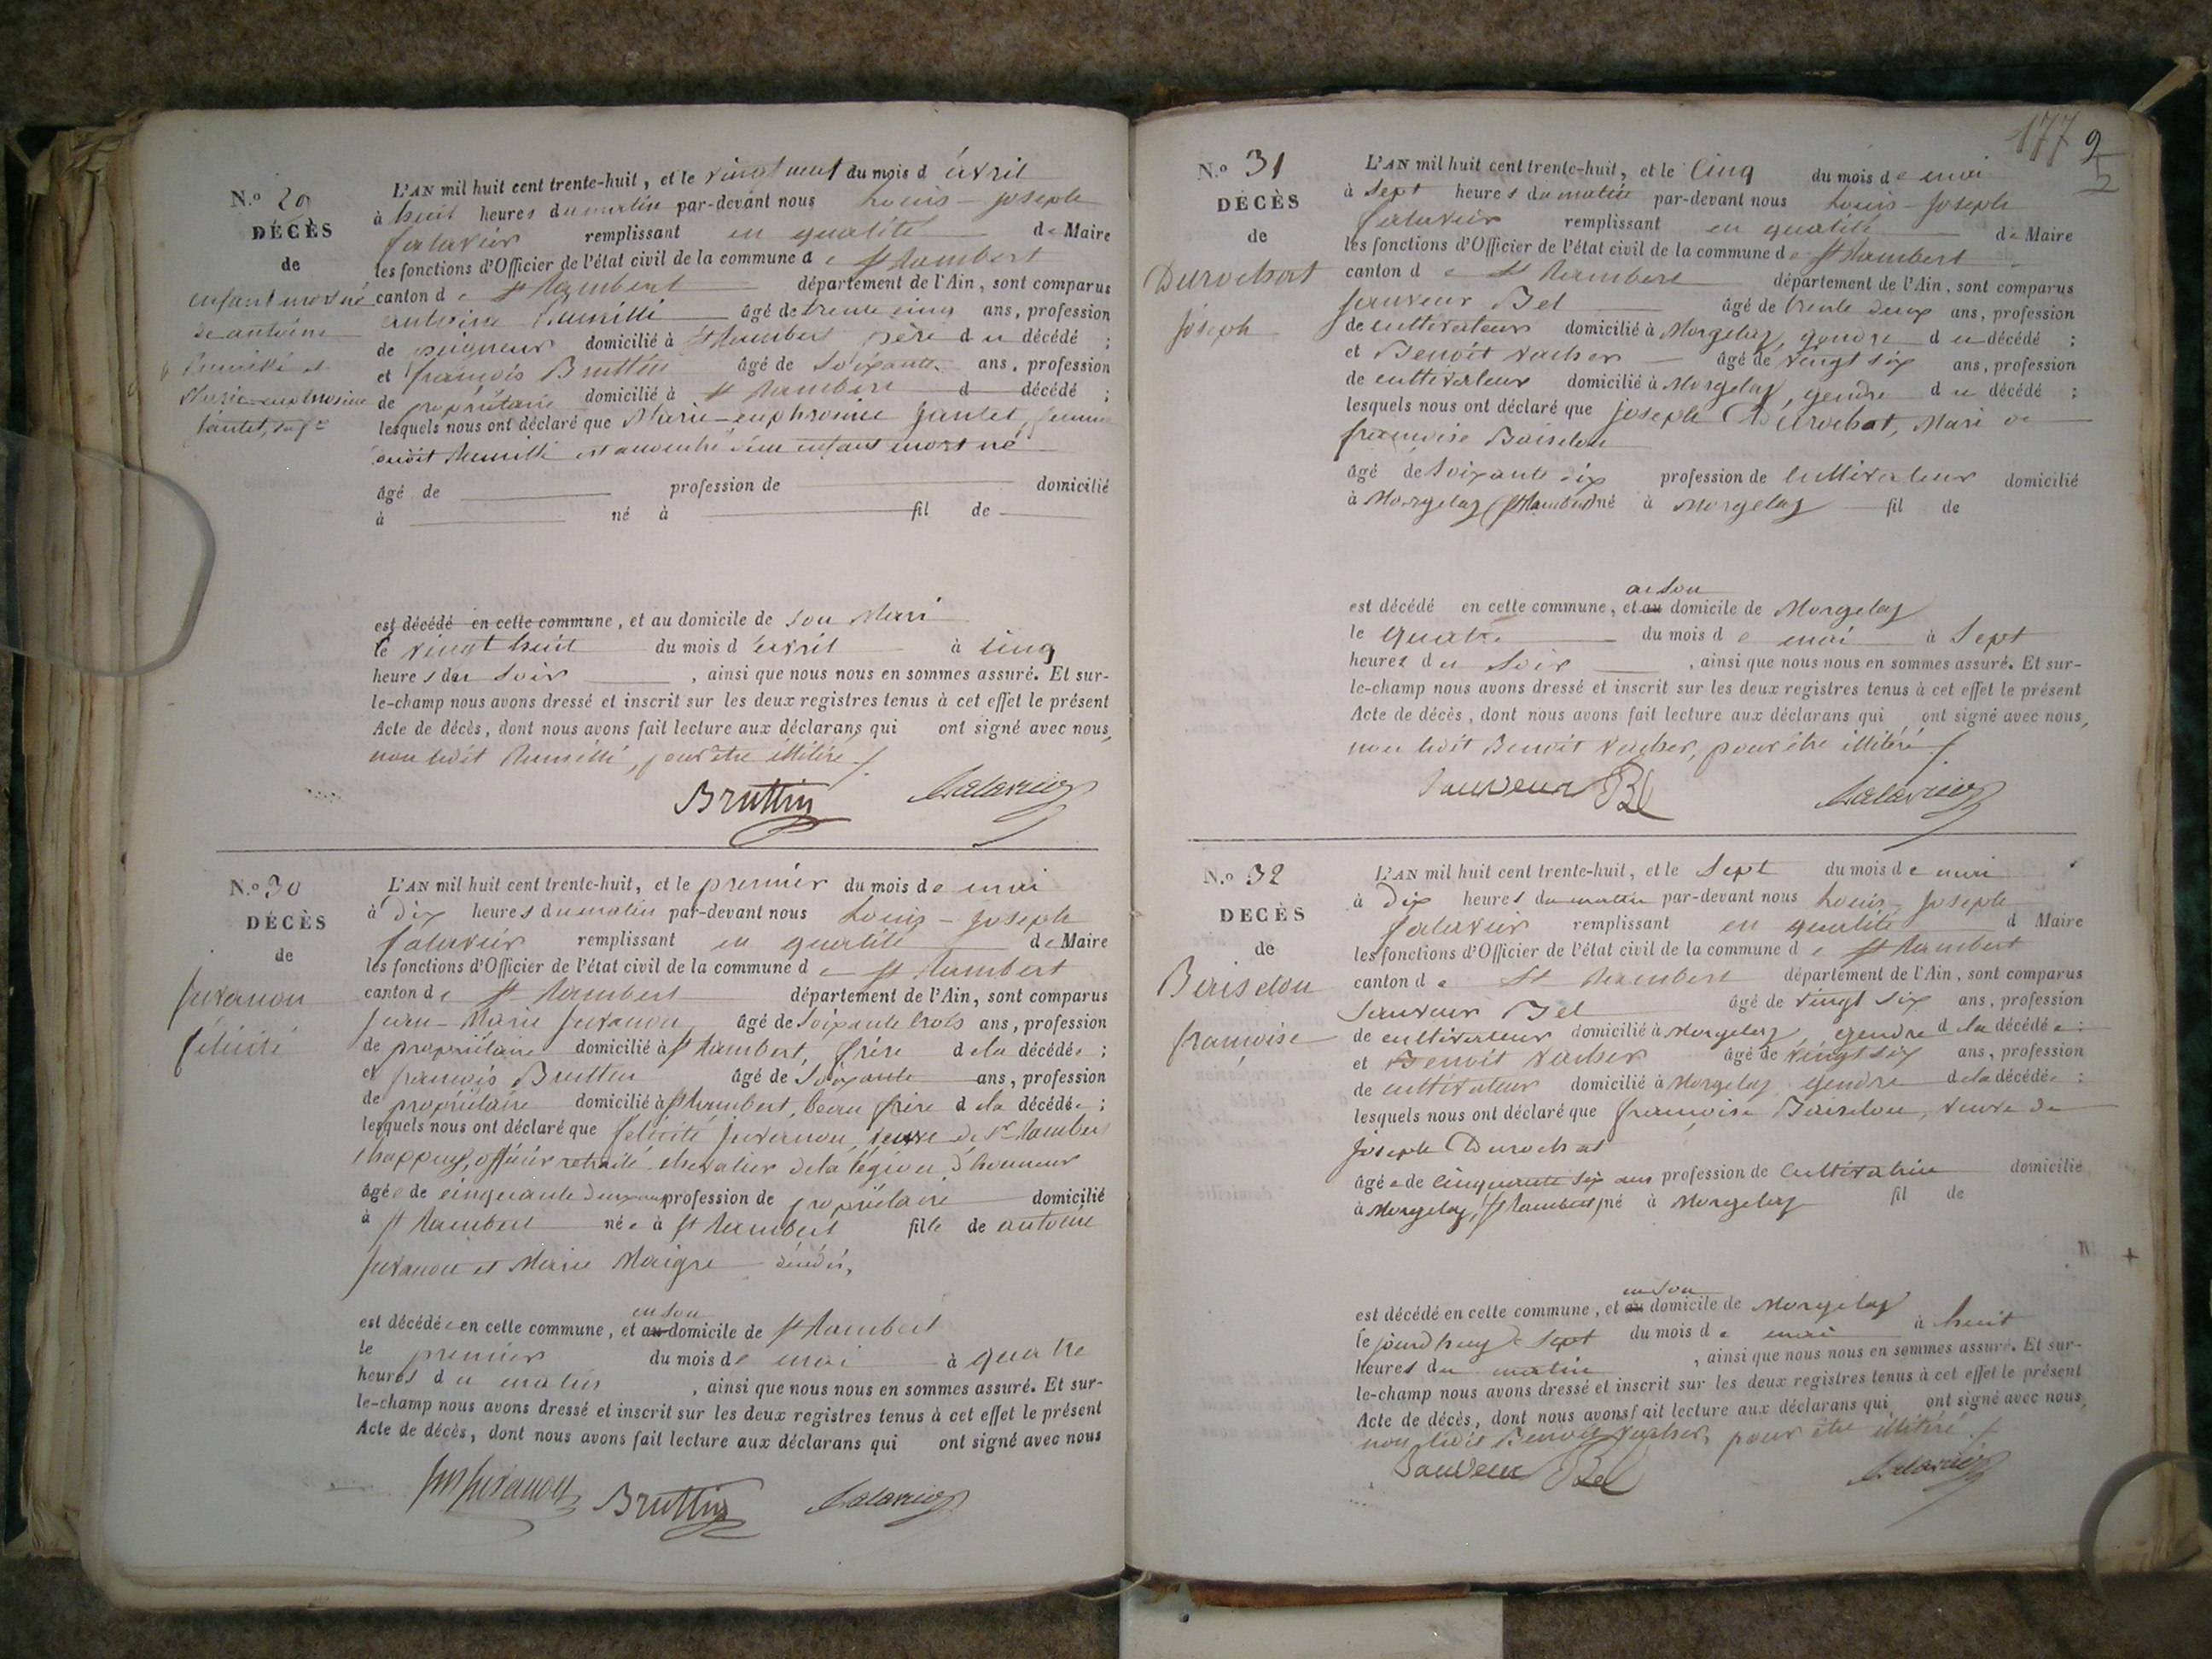 N.o 29
DÉCÈS
de
enfant mort né
de antoine
humilli et
Marie-euphrosine
jantet, sa fe
L'AN mil huit cent trente-huit, et le vingt neuf du mois d'avril
à huit heures du matin par-devant nous Louis-Joseph
falavier remplissant en qualité de Maire
les fonctions d'Officier de l'état civil de la commune de St Rambert
canton de St Rambert département de l'Ain, sont comparus
antoine humilli âgé de trente cinq ans, profession
de peigneur domicilié à St Rambert père du décédé ;
et françois Bruttin âgé de soixante ans, profession
de propriétaire domicilié à St Rambert d décédé ;
lesquels nous ont déclaré que Marie-euphrosine jantet, femme
dudit humilli est accouché d'un enfant mort né
âgé de profession de domicilié
à né à fil de
est décédé en cette commune, et au domicile de son Mari
le vingt huit du mois d'avril à cinq
heures du soir , ainsi que nous nous en sommes assuré. Et sur-
le-champ nous avons dressé et inscrit sur les deux registres tenus à cet effet le présent
Acte de décès, dont nous avons fait lecture aux déclarans qui ont signé avec nous,
non ledit humilli, pour être illitéré
Bruttin
N.o 30
DÉCÈS
de
Juvanon
félicité
L'AN mil huit cent trente-huit, et le premier du mois de mai
à dix heures du matin par-devant nous Louis-Joseph
falavier remplissant en qualité de Maire
les fonctions d'Officier de l'état civil de la commune de St Rambert
canton de St Rambert département de l'Ain, sont comparus
Jean-Marie Juvanon âgé de soixante trois ans, profession
de propriétaire domicilié à St Rambert, frère de la décédée ;
et françois Bruttin âgé de soixante ans, profession
de propriétaire domicilié à St Rambert, beau frère de la décédée ;
lesquels nous ont déclaré que félicité Juvanon, veuve de Sr Rambert
Chappuy, officier retraité chevalier de la légion d'honneur
âgée de cinquante deux ans profession de propriétaire domicilié
à St Rambert née à St Rambert fille de antoine
Juvanon et Marie Maigre décédés,
est décédée en cette commune, et au en son domicile de St Rambert
le premier du mois de mai à quatre
heures du matin , ainsi que nous nous en sommes assuré. Et sur-
le-champ nous avons dressé et inscrit sur les deux registres tenus à cet effet le présent
Acte de décès, dont nous avons fait lecture aux déclarans qui ont signé avec nous
Juvanon Bruttin
177
N.o 31
DÉCÈS
de
Durochat
Joseph
L'AN mil huit cent trente-huit, et le cinq du mois de mai
à sept heures du matin par-devant nous Louis-Joseph
falavier remplissant en qualité de Maire
les fonctions d'Officier de l'état civil de la commune de St Rambert
canton de St Rambert département de l'Ain, sont comparus
Sauveur Bel âgé de trente deux ans, profession
de cultivateur domicilié à Morgelaz, gendre du décédé ;
et Benoit Vacher âgé de vingt six ans, profession
de cultivateur domicilié à Morgelaz, gendre du décédé ;
lesquels nous ont déclaré que Joseph Durochat, Mari de
françoise Baiselou
âgé de soixante dix profession de cultivateur domicilié
à Morgelaz (St Rambert) né à Morgelaz fil de
est décédé en cette commune, et au en son domicile de Morgelaz
le quatre du mois de mai à sept
heures du soir , ainsi que nous nous en sommes assuré. Et sur-
le-champ nous avons dressé et inscrit sur les deux registres tenus à cet effet le présent
Acte de décès, dont nous avons fait lecture aux déclarans qui ont signé avec nous,
non ledit Benoit Vacher, pour être illitéré
Sauveur Bel
N.o 32
DÉCÈS
de
Baiselou
françoise
L'AN mil huit cent trente-huit, et le sept du mois de mai
à dix heures du matin par-devant nous Louis-Joseph
falavier remplissant en qualité d Maire
les fonctions d'Officier de l'état civil de la commune de St Rambert
canton de St Rambert département de l'Ain, sont comparus
Sauveur Bel âgé de vingt six ans, profession
de cultivateur domicilié à Morgelaz gendre de la décédée ;
et Benoit Vacher âgé de vingt six ans, profession
de cultivateur domicilié à Morgelaz gendre de la décédée ;
lesquels nous ont déclaré que françoise Baiselou, veuve de
Joseph Durochat
âgée de cinquante six ans profession de cultivatrice domicilié
à Morgelaz, (St Rambert) né à Morgelaz fil de
est décédé en cette commune, et au en son domicile de Morgelaz
le jourdhuy sept du mois de mai à huit
heures du matin , ainsi que nous nous en sommes assuré. Et sur-
le-champ nous avons dressé et inscrit sur les deux registres tenus à cet effet le présent
Acte de décès, dont nous avons fait lecture aux déclarans qui ont signé avec nous,
non ledit Benoit Vacher, pour être illitéré
Sauveur Bel